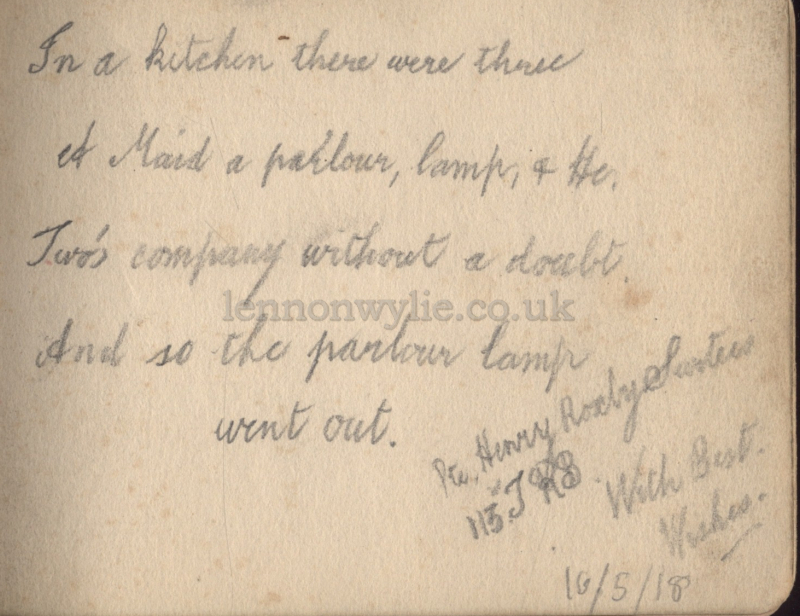 In a kitchen there were three
A Maid a parlour, lamp, & He.
Two's company without a doubt.
lennonwylie.co.uk
And so the parlour lamp
went out.
Pte. Henry Roxby
113.
With Best.
Wishes.
10/5/18